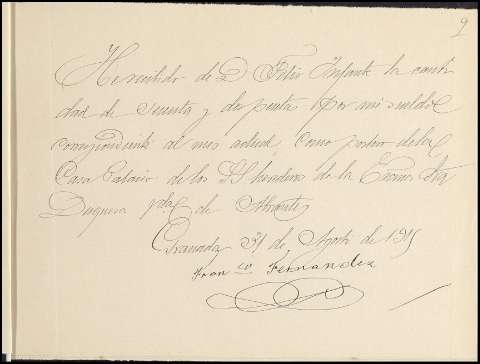 9
He recibido de D Félix Infante la canti
dad de setenta y dos pesetas por mi sueldo
correspondiente al mes actual, como portero de la
Casa Palacio de los SS herederos de la Excma Sra
Duquesa de Abrantes
Granada 31 de Agosto de 1915
Franco Fernandez